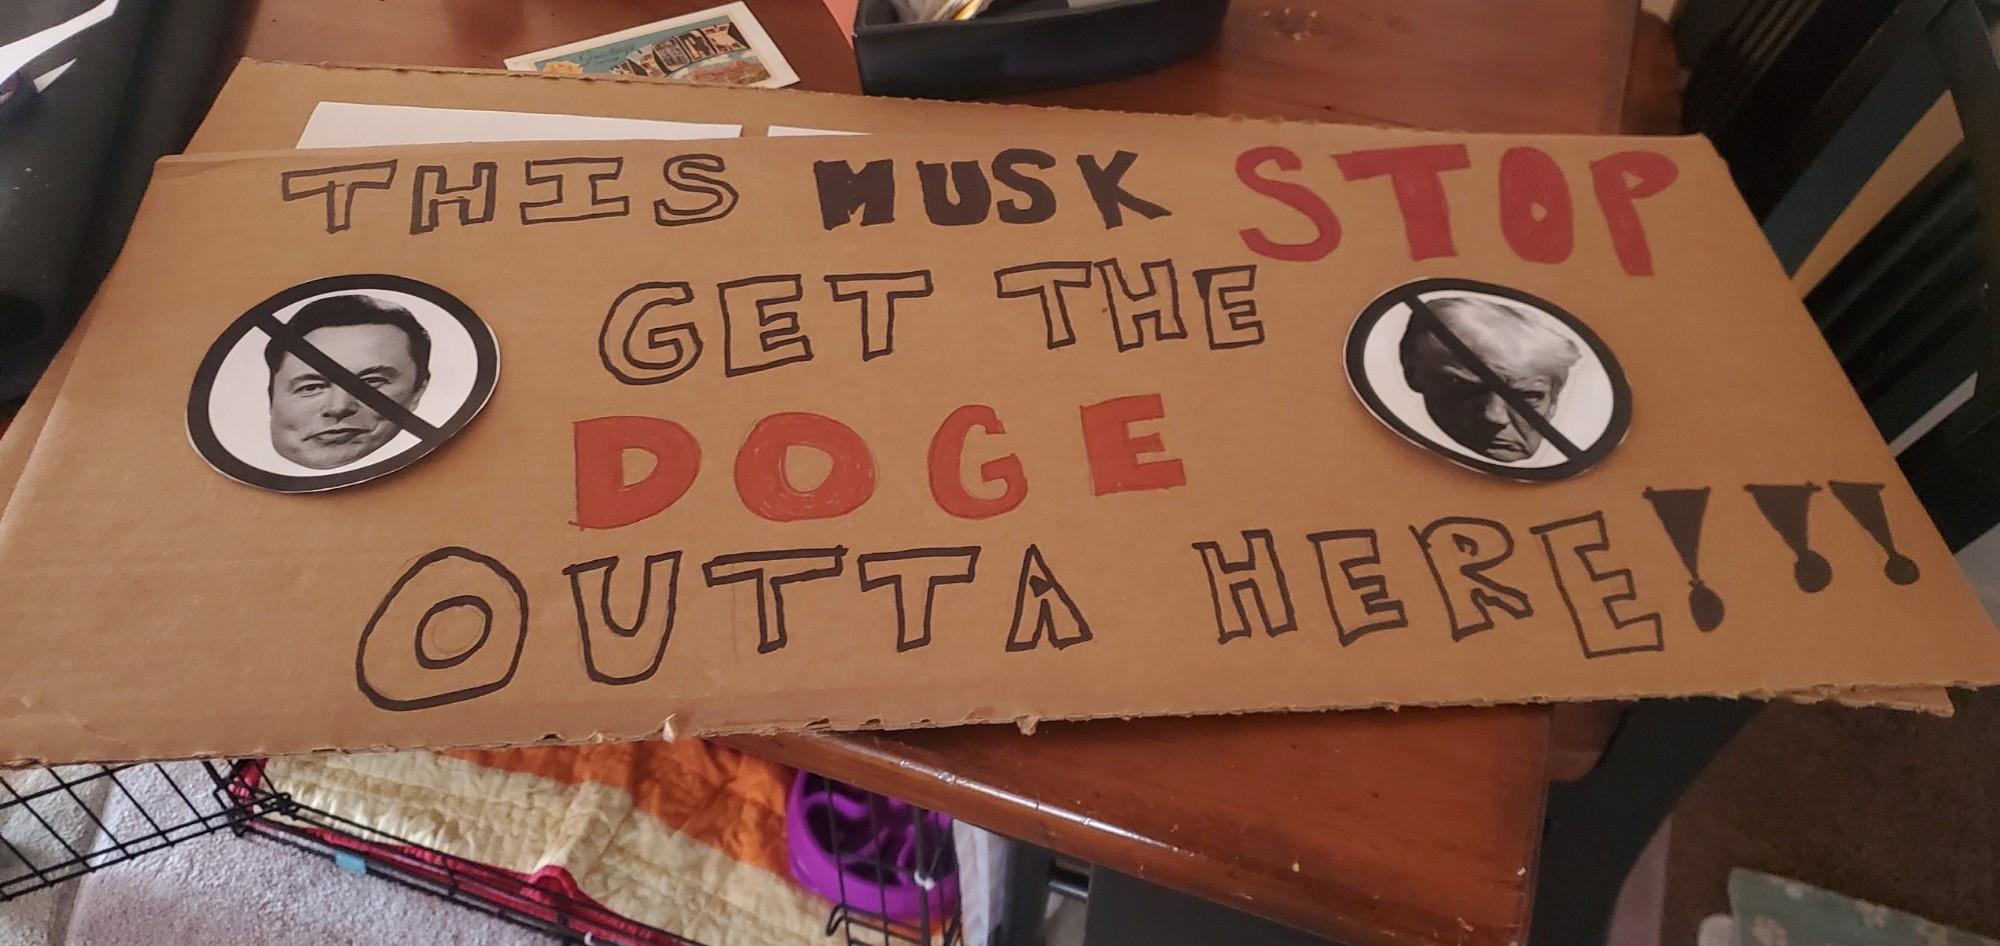 Greetings
THIS MUSK STOP
GET THE
DOGE
OUTTA HERE!!!